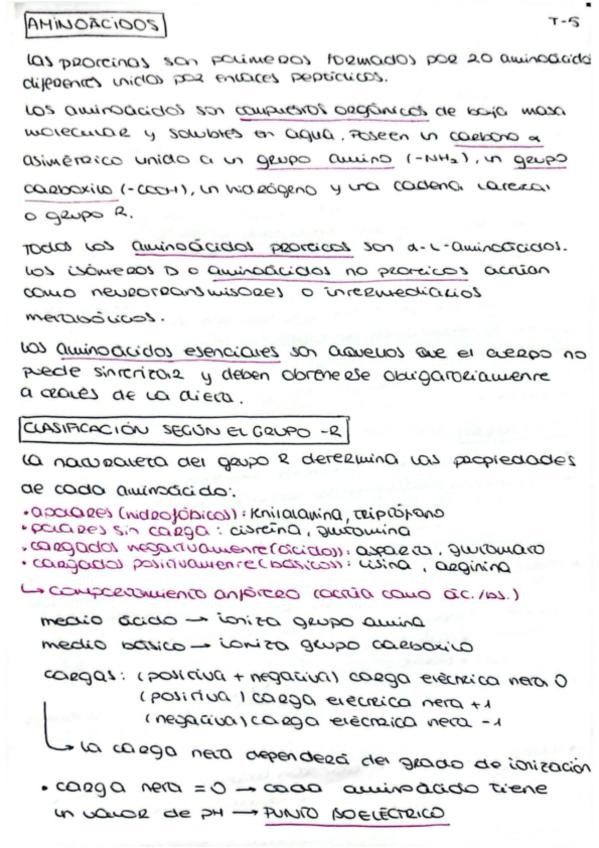 AMINOÁCIDOS
T-5
Las proteínas son polímeros formados por 20 aminoácido
diferentes unidos por enlaces peptídicos.
Los aminoácidos son compuestos orgánicos de baja masa
molecular y solubles en agua. Poseen un carbono α
asimétrico unido a un grupo amino (-NH₂), un grupo
carboxilo (-COOH), un hidrógeno y una cadena lateral
o grupo R.
Todos los aminoácidos proteicos son α-L-aminoácidos.
Los isómeros D o aminoácidos no proteicos actúan
como neurotransmisores o intermediarios
metabólicos.
Los aminoácidos esenciales son aquellos que el cuerpo no
puede sintetizar y deben obtenerse obligatoriamente
a través de la dieta.
CLASIFICACIÓN SEGÚN EL GRUPO -R
La naturaleza del grupo R determina las propiedades
de cada aminoácido:
• apolares (hidrofóbicos): fenilalanina, triptófano
• polares sin carga: cisteína, glutamina
• cargados negativamente (ácidos): asparta, glutamato
• cargados positivamente (básicos): lisina, arginina
↳ comportamiento anfótero (actúa como ác./bs.)
medio ácido → ioniza grupo amina
medio básico → ioniza grupo carboxilo
cargas: (positiva + negativa) carga eléctrica neta 0
(positiva) carga eléctrica neta +1
(negativa) carga eléctrica neta -1
↳ la carga neta dependerá del grado de ionización
• carga neta = 0 → cada aminoácido tiene
un valor de pH → PUNTO ISOELÉCTRICO